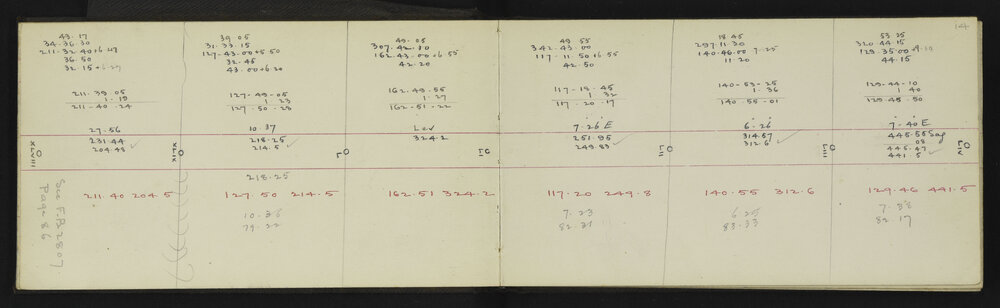 14
43.17
34.36.30
211.32.40+6.47
36.50
32.15+6.29
211.39.05
1.19
211-40.24
27.56
231.44
204.48
XLVIII
211.40 204.5
See F.B. 2807
Page 86
39.05
31.33.15
127-43.00+5.50
32.45
43.00+6.20
127.49.05
1 23
127.50.28
10.37
218.25
214.5
XLIX
218.25
127.50 214.5
10.36
79.22
49.05
307.42.30
162.43.00+6.55
42.20
162.49.55
1.27
162-51-22
Lev
324.2
L
162.51 324.2
49 55
342.43.00
117.11.50+6.55
42.50
117.18.45
1 32
117.20.17
7.26 E
251.95
249.83
LI
117.20 249.8
7.23
82.31
18 45
297.11.30
140.46.00 7.25
11 20
140-53-25
1.36
140.55-01
6.26
314.67
312.6
LII
140.55 312.6
6 25
83.33
53.25
320 44 15
129.35.00+9.10
44.15
129-44-10
1 40
129.45.50
7.40 E
445.55 Sag
08
445.47
441.5
LIII
LIV
129.46 441.5
7.38
82.17